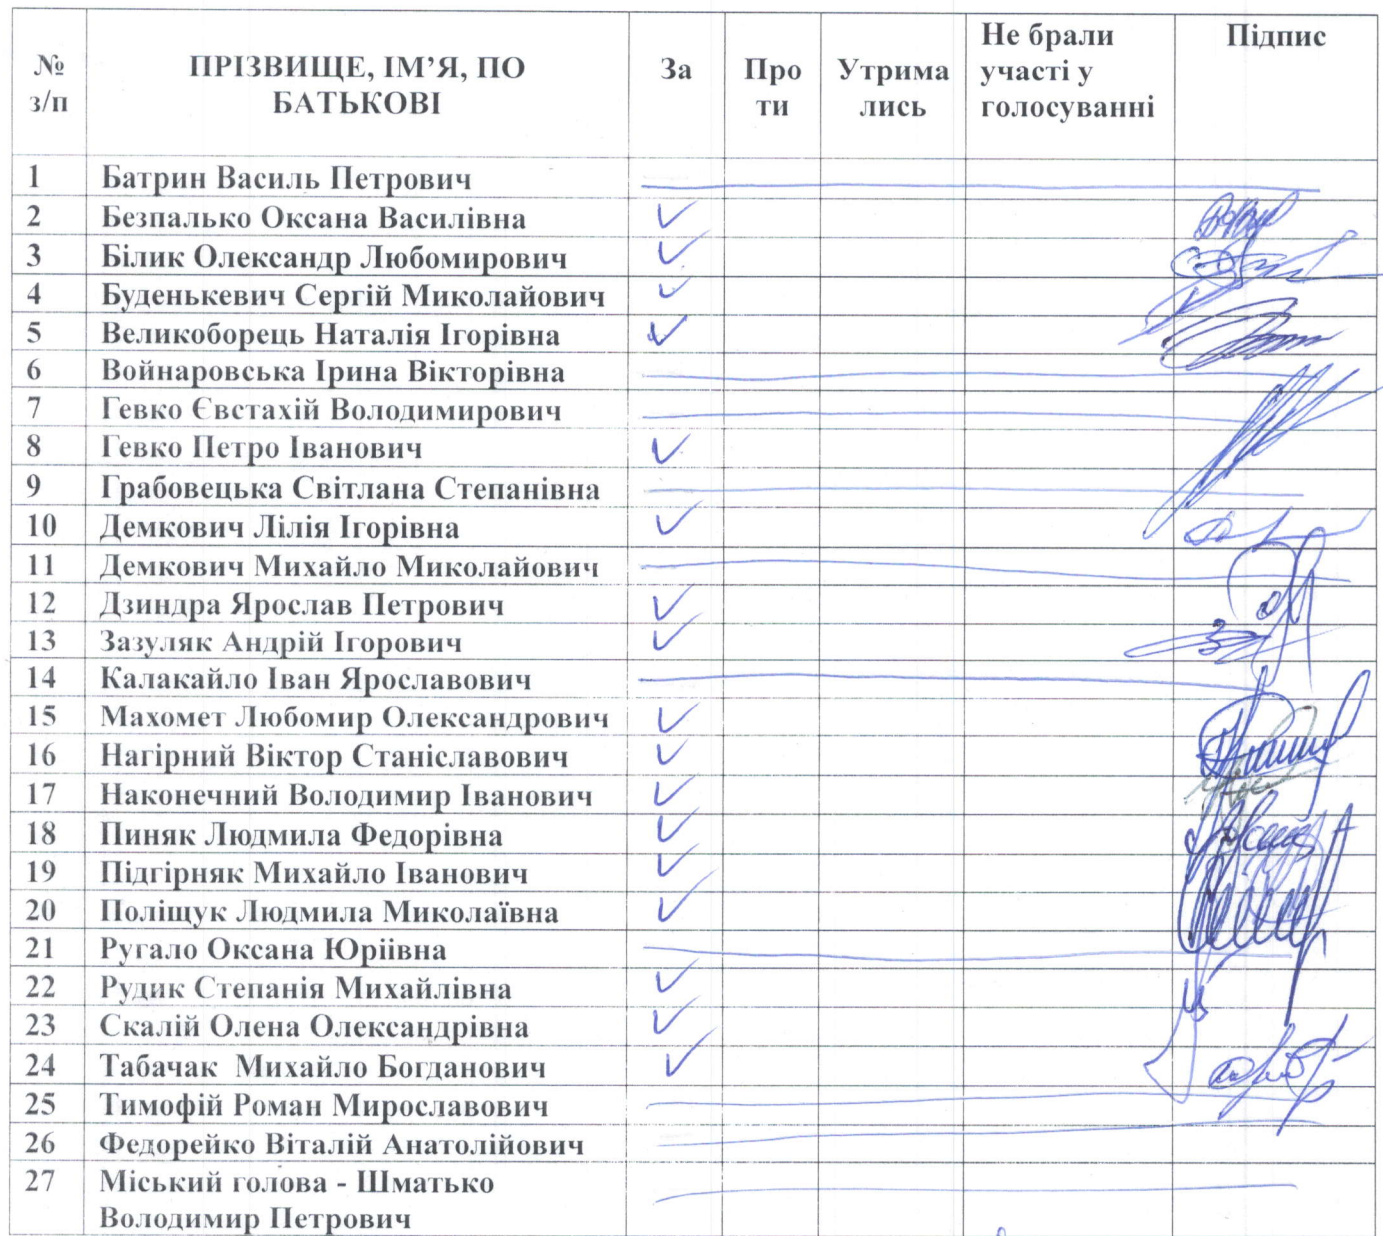 № з/п ПРІЗВИЩЕ, ІМ’Я, ПО БАТЬКОВІ За Про ти Утрима лись Не брали участі у голосуванні Підпис
1 Батрин Василь Петрович
2 Безпалько Оксана Василівна ✓
3 Білик Олександр Любомирович ✓
4 Буденькевич Сергій Миколайович ✓
5 Великоборець Наталія Ігорівна ✓
6 Войнаровська Ірина Вікторівна
7 Гевко Євстахій Володимирович
8 Гевко Петро Іванович ✓
9 Грабовецька Світлана Степанівна
10 Демкович Лілія Ігорівна ✓
11 Демкович Михайло Миколайович
12 Дзиндра Ярослав Петрович ✓
13 Зазуляк Андрій Ігорович ✓
14 Калакайло Іван Ярославович
15 Махомет Любомир Олександрович ✓
16 Нагірний Віктор Станіславович ✓
17 Наконечний Володимир Іванович ✓
18 Пиняк Людмила Федорівна ✓
19 Підгірняк Михайло Іванович ✓
20 Поліщук Людмила Миколаївна ✓
21 Ругало Оксана Юріївна
22 Рудик Степанія Михайлівна ✓
23 Скалій Олена Олександрівна ✓
24 Табачак Михайло Богданович ✓
25 Тимофій Роман Мирославович
26 Федорейко Віталій Анатолійович
27 Міський голова - Шматько
Володимир Петрович